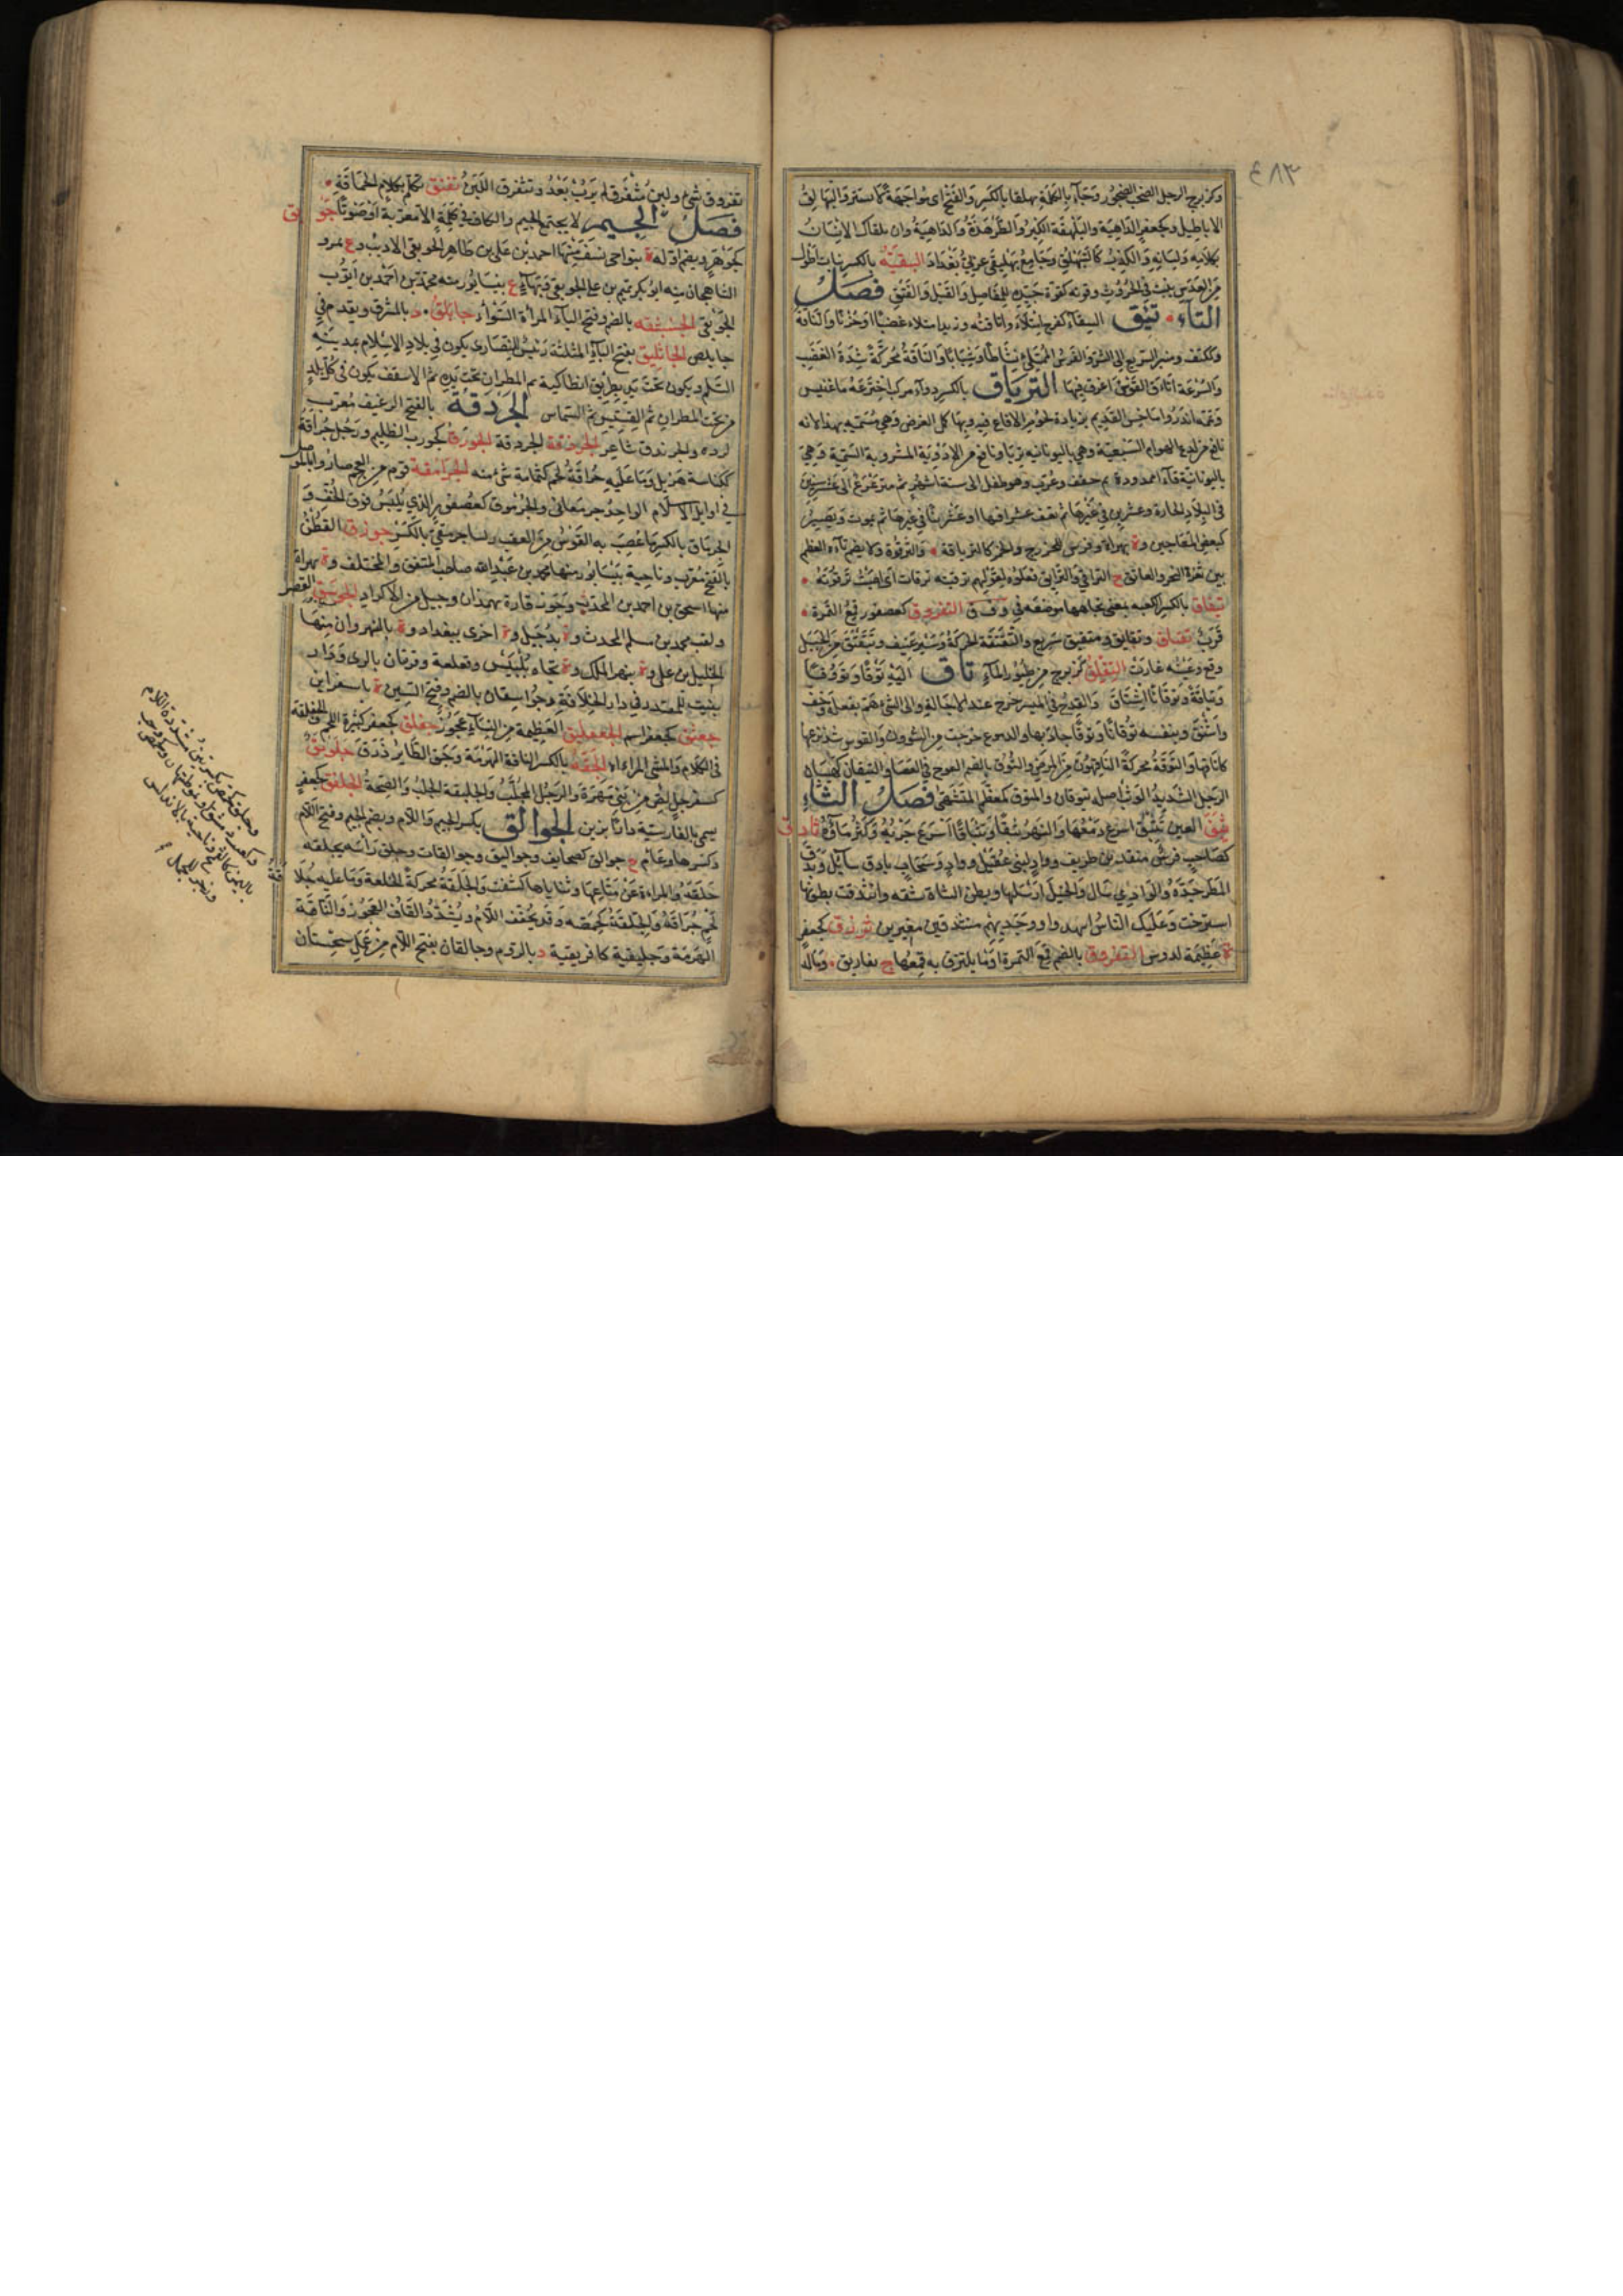 ٤٨٣
وكزبرج الرجل الصخب الضجور وجاء بالكلمة بهلقا بالكسر والفتح اى مواجهة لا يستتر والبهالق
الاباطيل وكجعفر الداهية والبلهقة الكبر والطرمذة والداهية وان تلقاك الانسان
بكلامه ولسانه والكذب كالتبهلق وجامع بهليقى غربى بغداد البيقية بالكسر نبات اطول
من العدس ينبت فى الحروث وقوته كقوة جيده للمفاصل والقبل والفتق فصل
التاء تئق السقاء كفرح امتلاء واتاقته وزيد امتلاء غضبا او حزنا والتاقة
وككتف ومنبر السريع الى الشر والفرس الممتلئ نشاطا وشبابا والتاقة محركة شدة الغضب
والسرعة اتاءق القوس اغرق فيها الترياق بالكسر دواء مركب اخترعه ماغنيس
وتممه اندروماخس القديم بزيادة لحوم الافاعى فيه وبها كمل الغرض وهى مسميه بهذا لانه
نافع من لدغ الهوام السبعية وهى باليونانيه تريا ونافع من الادوية المشروبة السمية وهى
باليونانية قاآ ممدودة ثم خفف وعرب وهو طفل الى ستة اشهر ثم مترعرع الى عشر سنين
فى البلاد الحارة وعشرين فى غيرها ثم يقف عشرا فيها او عشرينا فى غيرها ثم يموت ويصير
كبعض المعاجين وة بهراة وفرس للخزرج والخمر كالترياقة والترقوة ولا يضم تاءه العظم
بين ثغرة النحر والعاتق ج التراقى والترايق فعلوة لقولهم ترقيته ترقات اى اصبت ترقوته
تيفاق بالكسر الكعبه بمعنى تجاهها موضعه فى وفق التفروق كعصفور قمع التمرة
قرب تقتاق وتقاتق ومتقتق سريع والتقتقة الحركة وسير عنيف وتتقتق من الجبل
وقع وعينه غارت التقلق كزبرج من طيور الماء تاق اليه توقا وتووقا
وتياقة وتوقانا اشتاق والقدح فى الميسر خرج عند الاجالة والى الشئ هم بفعله وخف
واشفق وبنفسه توقانا وتوقا جاد بها والدموع خرجت من الشوون والقوس شد نزعها
كاتاقها والتوقة محركة الناقهون من المرض والتوق بالضم العوج فى العصا والتيقان كهيبان
الرجل الشديد الوثب اصله تيوقان والمتوق كمعظم المتشهى فصل الثاء
ثبق العين تثبق اسرع دمعها والنهر ثبقا وتثباقا اسرع جريه وكثر ماؤه ثادق
كصاحب فرس منقذ بن طريف وواد لبنى عقيل وواد وسحاب ثادق سائل وثدق
المطر جد والوادى سال والخيل ارسلها وبطن الشاة شقه وانثدقت بطونها
استرخت وعليك الناس انهدوا ووجدتهم منثدقين مغيرين ثرذق كجعفر
ة عظيمة لدوس الثفروق بالضم قمع التمرة او ما يلتزق به قمعها ج ثفاريق وماله
ثفروق شئ ولبن مثفرق لم يرب بعد وتثفرق اللبن ثفنق تكلم بكلام الحماقة
فصل الجيم لا يجتمع الجيم والكاف فى كلمة الا معربة او صوتا جوبق
كجوهر ويضم اوله ة بنواحى نسف منها احمد بن على بن طاهر الجوبقى الاديب وع بمرو
الشاهجان منه ابو بكر تميم بن على الجوبقى وبهاء ع بنيسابور منه محمد بن احمد بن ايوب
الجوبقى الجنبثقه بالضم وفتح الباء المراة السوء جابلق د بالمشرق ويقدم فى
جابلص الجاثليق بفتح الثاء المثلثة رئيس للنصارى يكون فى بلاد الاسلام بمدينة
السلم ويكون تحت يد بطريق انطاكية ثم المطران تحت يده ثم الاسقف يكون فى كل بلد
من تحت المطران ثم القسيس ثم الشماس الجردقة بالفتح الرغيف معرب
لرده والجرندق شاعر الجرذقة الجردقة الجورق كجورب الظليم ورجل جراقة
ككناسة هزيل وما عليه جراقة لحم كثمامة شئ منه الجرامقة قوم من العجم صاروا بالموصل
فى اوايل الاسلام الواحد جرمقانى والجرموق كعصفور الذى يلبس فوق الخف و
الجرماق بالكسر ما عصب به القوس من العقب جوزق القطن
بالفتح معرب وناحية بنيسابور منها محمد بن عبد الله صاحب المتفق والمختلف وة بهراة
منها اسحق بن احمد بن المحدث وجوزقان ة بهمذان وجيل من الاكراد الجوسق القصر
ولقب محمد بن مسلم المحدث وة بدجيل وة اخرى ببغداد وة بالنهروان منها
الخليل بن على وة بنهر الملك وة تجاه بلبيس وقلعة وقريتان بالرى ودار
بنيت للمقتدر فى دار الخلافة وجواسقان بالضم وفتح السين ة باسفراين
جعثق كجعفر اسم الجعفليق العظيمة من النساء عجوز جفلق كجعفر كثيرة اللحم والجفلقة
فى الكلام والمشى المراءاة الجقة بالكسر الناقة الهرمة وجق الطاير ذرق جلوبق
كسفرجل لص من بنى سهرة والرجل المجلب والجلبقة الجلب والضجة الجلفق كجعفر
يسمى بالفارسية دارابزين الجوالق بكسر الجيم واللام وبضم الجيم وفتح اللام
وكسرها وعاءم ج جوالق كصحايف وجواليق وجوالقات وجلق راسه يجلقه
حلقه والمراءة عن متاعها وثناياها كشفت والجلقة محركة الجلعة وما عليه جلا
قة
لحم جراقة والجلقة كحمصه وقد يخفف اللام ويشدد القاف العجوز والناقة
الهرمة وجليقية كافريقية د بالروم وجالقان بفتح اللام من عمل سجستان
وجلق كحمص بكسرتين مشددة اللام
بالاندلس